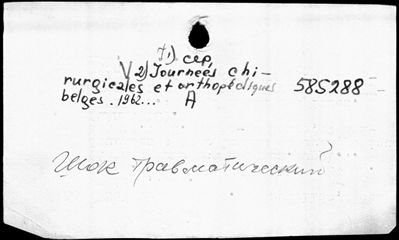 1) сер,
V 2) Journees chi-
rurgicales et orthopédiques 585288
belges. 1962... A
Шок травматический